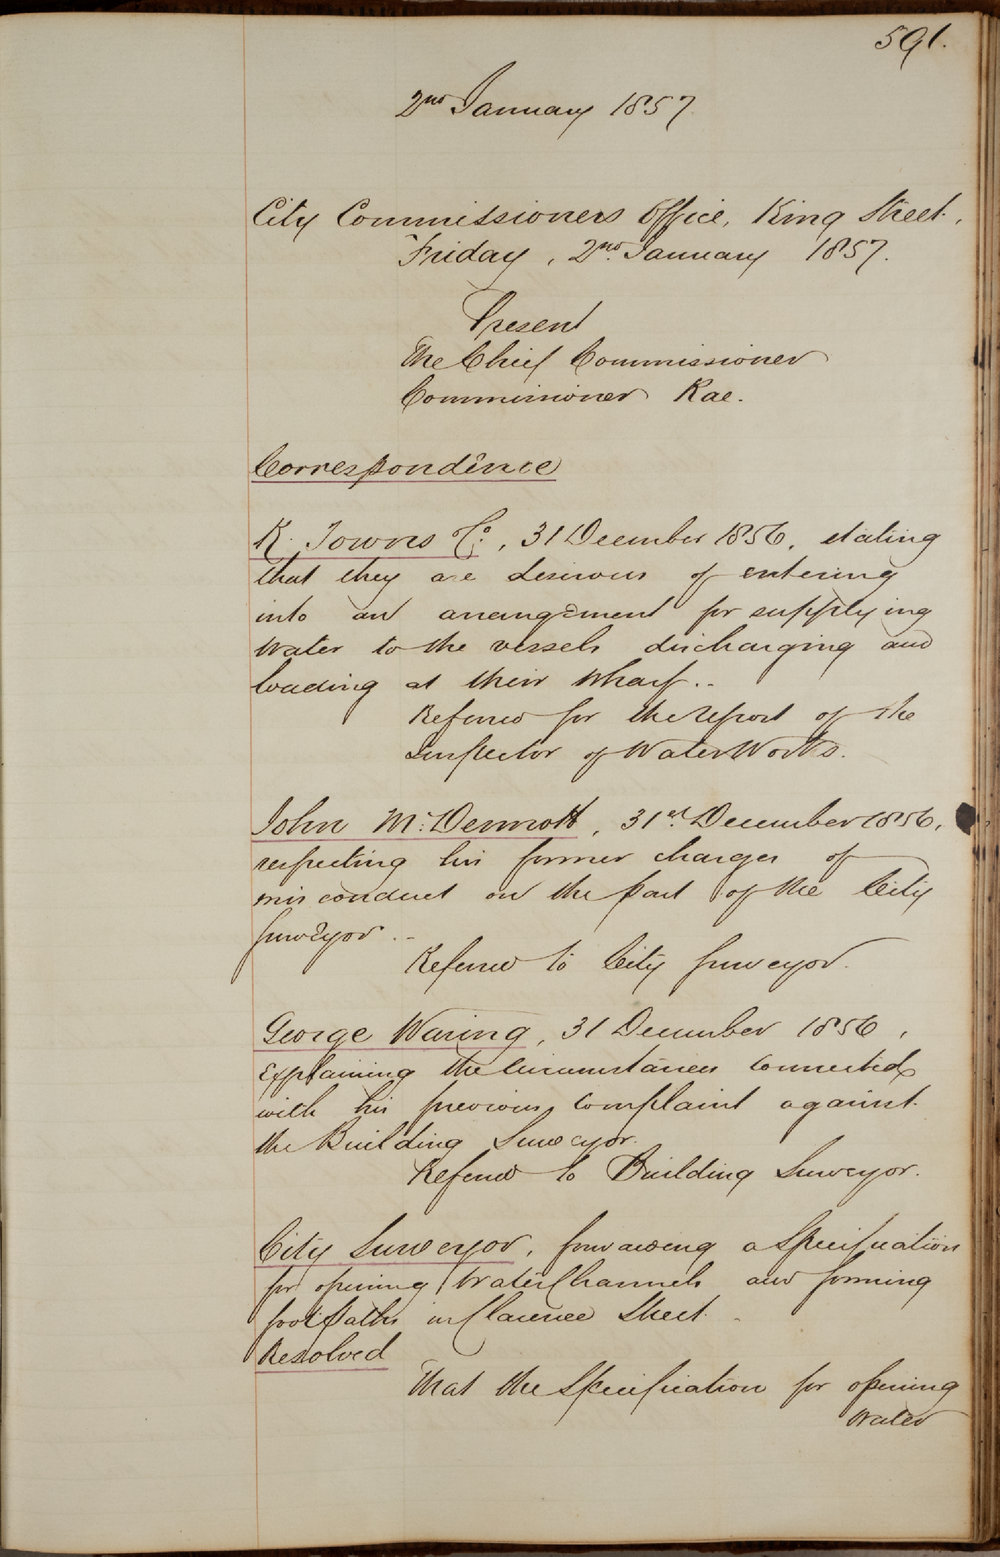 591.
2nd January 1857
City Commissioners Office, King Street.
Friday, 2nd January 1857.
Present
The Chief Commissioner
Commissioner Rae.
Correspondence
R. Towns & Co., 31 December 1856, stating
that they are desirous of entering
into an arrangement for supplying
Water to the vessels discharging and
loading at their Wharf..
Referred for the report of the
Inspector of Water Works.
John McDermott, 31st December 1856,
respecting his former charges of
misconduct on the part of the City
Surveyor.
Referred to City Surveyor.
George Waring, 31 December 1856,
Explaining the Circumstances connected
with his previous complaint against
the Building Surveyor.
Referred to Building Surveyor.
City Surveyor, forwarding a Specification
for opening Water Channels and forming
foot Paths in Clarence Street.
Resolved
That the Specification for opening
Water